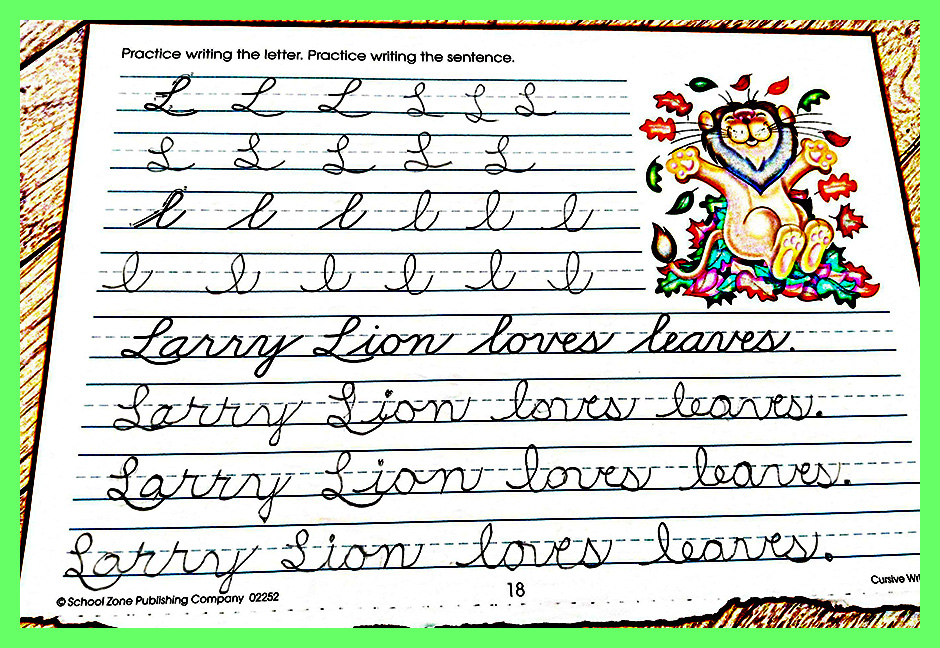 Practice writing the letter. Practice writing the sentence.
L L L L L L
L L L L L
l l l l l l
l l l l l l
Larry Lion loves leaves.
Larry Lion loves leaves.
Larry Lion loves leaves.
Larry Lion loves leaves.
© School Zone Publishing Company 02252
18
Cursive